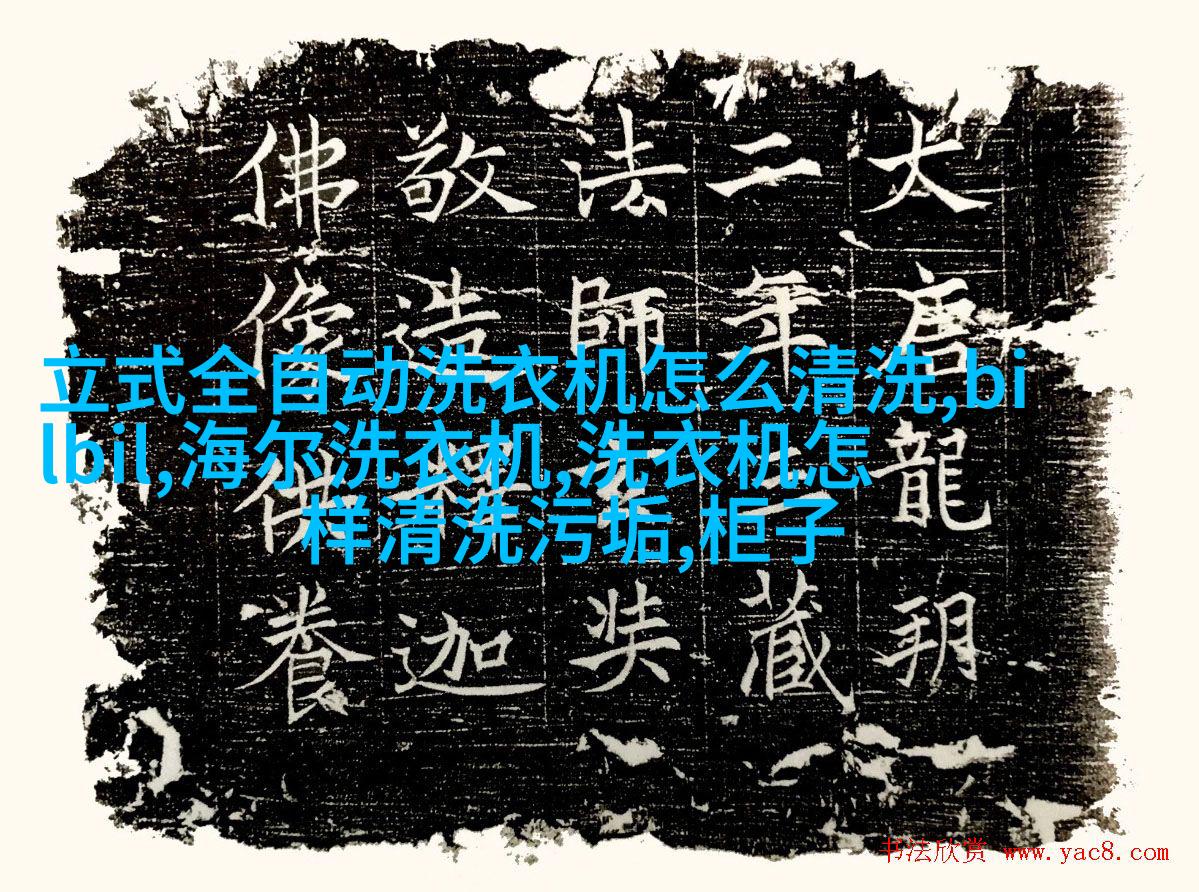 立式全自动洗衣机怎么清洗,bi
lbil,海尔洗衣机,洗衣机怎
样清洗污垢,柜子
大唐龍朔
二年三藏
法師玄奘
敬造釋迦
佛像供養
书法欣赏 www.yac8.com